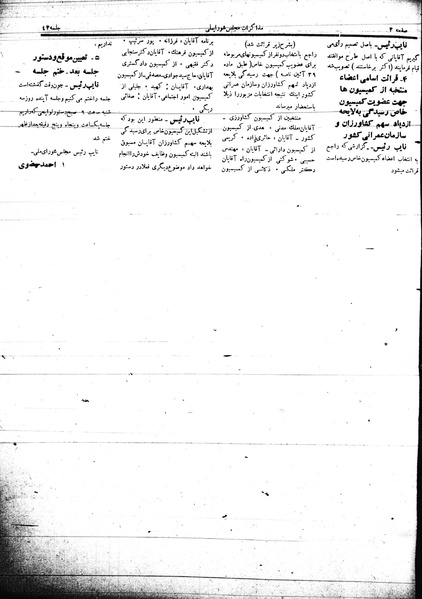 صفحه ۴
مذاکرات مجلس شورایملی
جلسه ۴۴
نایب رئیس ـ باصل تصمیم رأی می
گیریم آقایانی که با اصل طرح موافقند
قیام فرمایند (اکثر برخاستند) تصویب شد
۴ـ قرائت اسامی اعضاء
منتخبه از کمیسیون ها
جهت عضویت کمیسیون
خاص رسیدگی به لایحه
ازدیاد سهم کشاورزان و
سازمان عمرانی کشور
نایب رئیس ـ گزارشی که راجع
به انتخاب اعضاء کمیسیون خاص رسیده است
قرائت میشود
(بشرح زیر قرائت شد)
راجع بانتخاب دو نفر از کمیسیونهای مربوطه
برای عضویت کمیسیون خاص (طبق ماده
۳۹ آئین نامه) جهت رسیدگی بلایحه
ازدیاد سهم کشاورزان و سازمان عمرانی
کشور اینک نتیجه انتخابات مزبور را ذیلا
باستحضار میرساند
منتخبین از کمیسیون کشاورزی ـ
آقایان ملک مدنی ـ هدی از کمیسیون
کشور ـ آقایان ـ حائری زاده ـ کریمی
از کمیسیون دارائی ـ آقایان ـ مهندس
حسیبی ـ شوکتی از کمیسیون راه آقایان
دکتر ملکی ـ ذکائی از کمیسیون
برنامه آقایان ـ فرزانه ـ پور سرتیپ ـ
از کمیسیون فرهنگ ـ آقایان دکتر سنجابی
دکتر فقیهی ـ از کمیسیون دادگستری
آقایان ـ حاج سید جوادی ـ مصدقی از کمیسیون
بهداری ـ آقایان ـ کهبد ـ جلیلی از
کمیسیون امور اجتماعی ـ آقایان ـ صفائی
زیگی ـ
نایب رئیس ـ منظور این بود که
از تشکیل این کمیسیون خاص برای رسیدگی
بلایحه سهم کشاورزان آقایان مسبوق
باشند البته کمیسیون وظایف خودش را انجام
خواهد داد موضوع دیگری فعلا در دستور
نداریم .
۵ ـ تعیین موقع و دستور
جلسه بعد ـ ختم جلسه
نایب رئیس ـ چون وقت گذشته است
جلسه را ختم می کنیم و جلسه آینده روز سه
شنبه ساعت ۹ صبح
ختم شد
نایب رئیس مجلس شورای ملی ـ
احمد رضوی